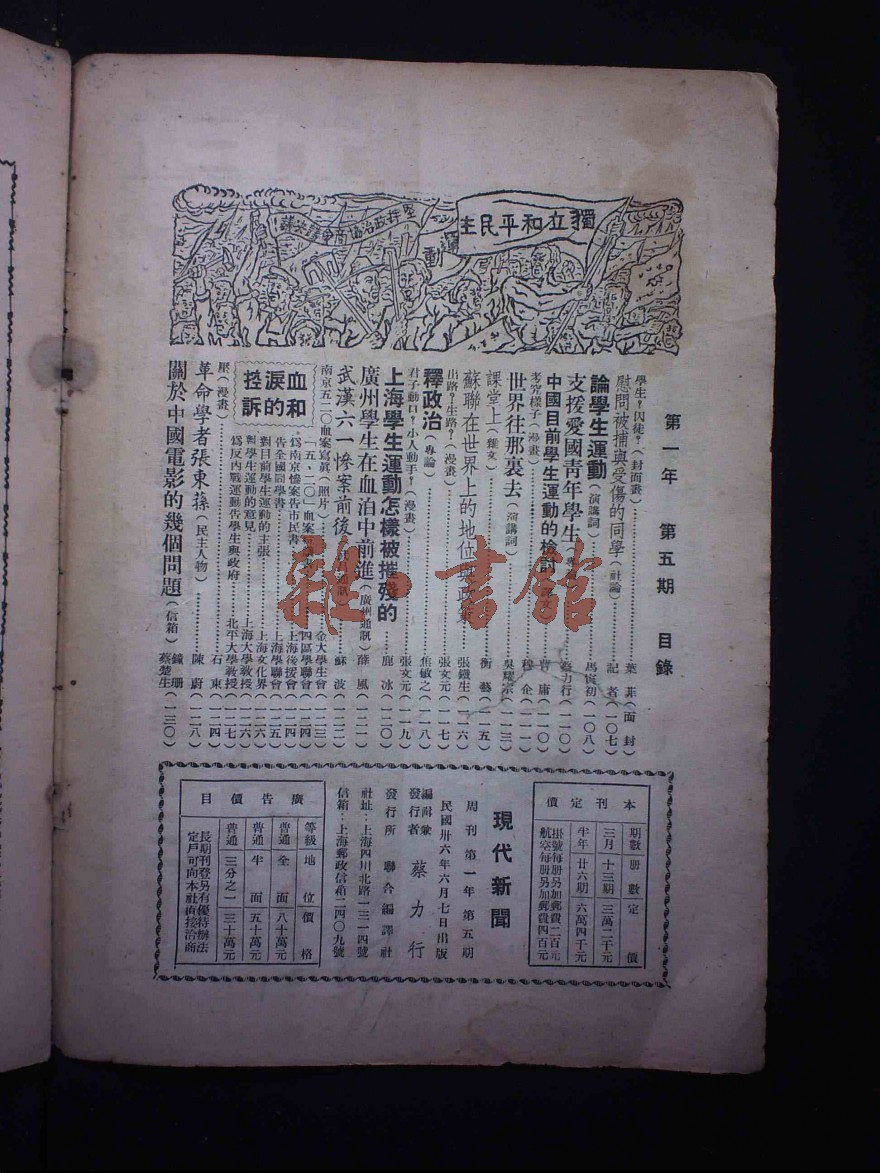 獨立和平民主
堅持政治協商會議決議
運動
第一年 第五期 目錄
學生?囚徒?(封面畫)……葉菲(面封)
慰問被捕與受傷的同學(社論)……記者(一〇七)
論學生運動(演講詞)……馬寅初(一〇八)
支援愛國青年學生……蔡力行(一一〇)
中國目前學生運動的檢討……曹庸(一一〇)
考究樣子(漫畫)……穆企(一一一)
世界往那裏去(演講詞)……吳耀宗(一一三)
課堂上(雜文)……衡藝(一一五)
蘇聯在世界上的地位與政策……張鐵生(一一六)
出路?生路?(漫畫)……張文元(一一七)
釋政治(專論)……焦敏之(一一八)
君子動口?小人動手?(漫畫)……張文元(一一九)
上海學生運動怎樣被摧殘的……鹿冰(一二〇)
廣州學生在血泊中前進(廣州通訊)……薛風(一二一)
武漢六一慘案前後……蘇波(一二二)
南京五二〇血案寫眞(照片)
血和淚的控訴
「五、二〇」血案……金大學生會(一二三)
爲南京慘案告市民書……四區學聯會(一二四)
告全國同學書……上海後援會(一二四)
對目前學生運動的主張……上海學聯會(一二五)
對學生運動的意見……上海文化界(一二六)
……上海大學教授(一二六)
爲反內戰運動告學生與政府……北平大學教授(一二七)
壓(漫畫)……石東(一二四)
革命學者張東蓀(民主人物)……陳蔚(一二八)
關於中國電影的幾個問題(信箱)……鐘珊 蔡楚生(一三〇)
本刊定價
期數 册數 定價
三月 十三期 三萬二千元
半年 廿六期 六萬四千元
掛號每册另加郵費二百元
航空每册另加郵費四百元
現代新聞
周刊 第一年 第五期
民國卅六年六月七日出版
編輯兼發行者 蔡力行
發行所 聯合編譯社
社址:上海四川北路一三一四號
信箱:上海郵政信箱二四〇九號
廣告價目
等級 地位 價格
普通 全面 八十萬元
普通 半面 五十萬元
普通 三分之一 三十萬元
長期刊登另有優待辦法
定戶可向本社直接洽商
雜·書館